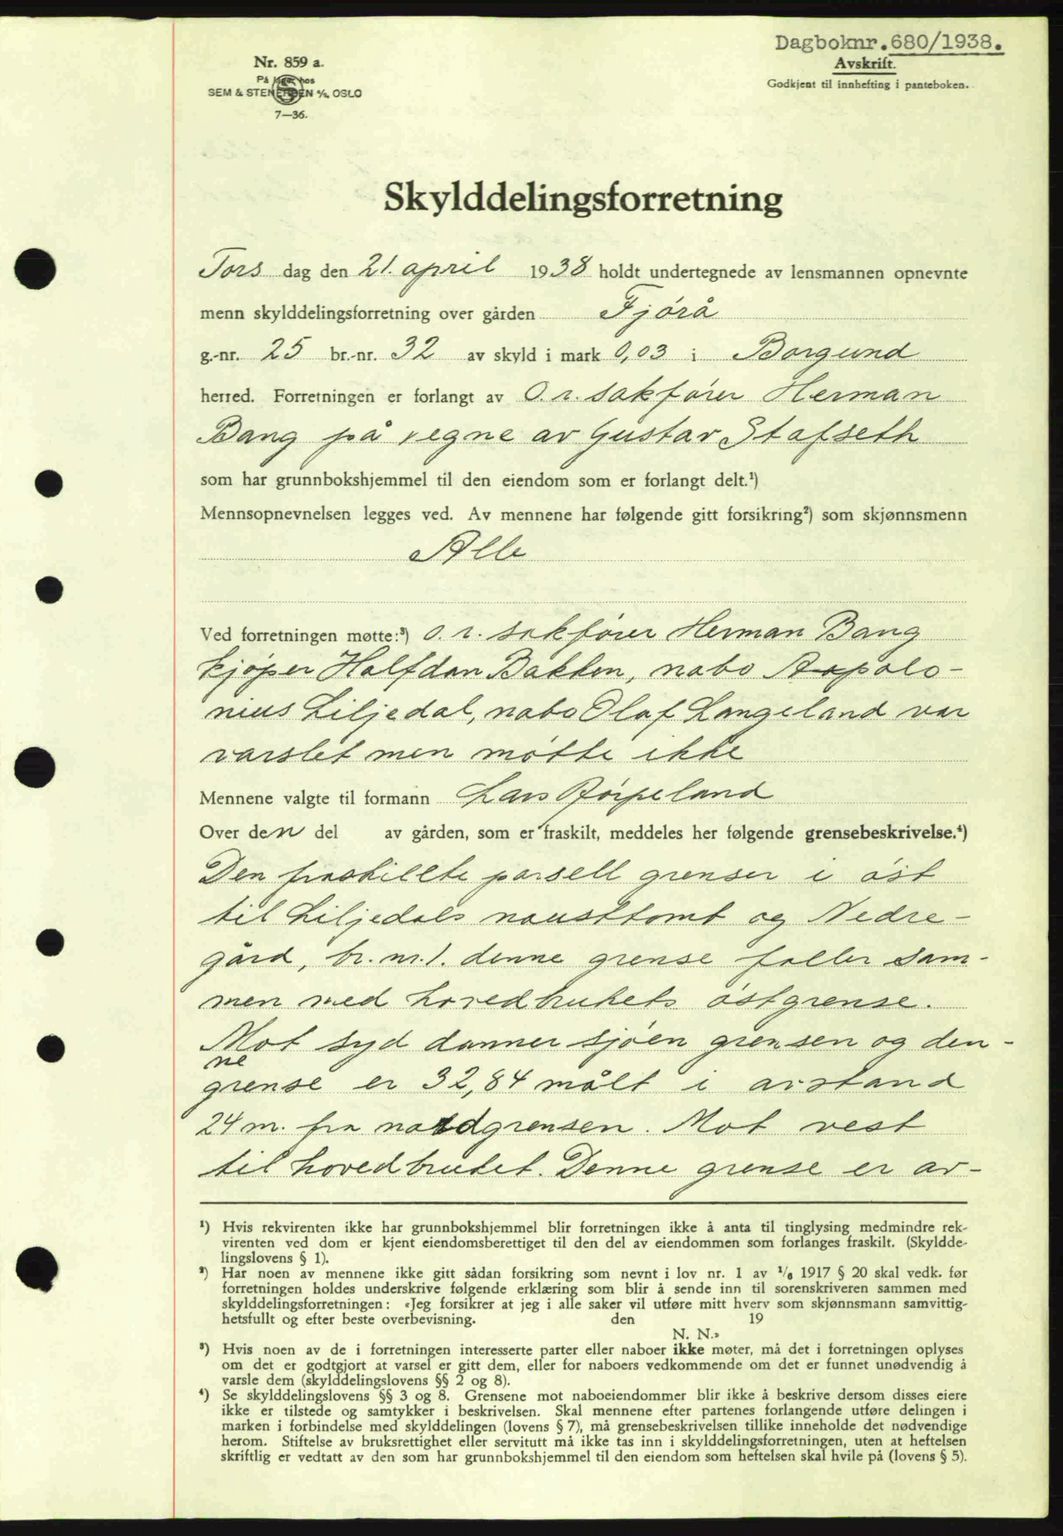 Dagboknr. 680/1938.
Avskrift.
Godkjent til innhefting i panteboken.
Nr. 859 a.
På lager hos
SEM & STENERSEN A/S, OSLO
7—36.
Skylddelingsforretning
Tors dag den 21. april 1938 holdt undertegnede av lensmannen opnevnte
menn skylddelingsforretning over gården Fjørå
g.-nr. 25 br.-nr. 32 av skyld i mark 0,03 i Borgund
herred. Forretningen er forlangt av O.r. sakfører Herman
Bang på vegne av Gustav Stafseth
som har grunnbokshjemmel til den eiendom som er forlangt delt.¹)
Mennsopnevnelsen legges ved. Av mennene har følgende gitt forsikring²) som skjønnsmenn
Alle
Ved forretningen møtte:³) O.r. sakfører Herman Bang
kjøper Halfdan Bakken, nabo Appolo-
nius Liljedal, nabo Olaf Langeland var
varslet men møtte ikke
Mennene valgte til formann Lars Røipeland
Over den del av gården, som er fraskilt, meddeles her følgende grensebeskrivelse.⁴)
Den fraskillte parsell grenser i øst
til Liljedals nausttomt og Nedre-
gård, br. nr. 1. denne grense faller sam-
men med hovedbrukets østgrense.
Mot syd danner sjøen grensen og den-
ne
grense er 32,84 målt i avstand
24 m. fra nordgrensen. Mot vest
til hovedbruket. Denne grense er av-
¹) Hvis rekvirenten ikke har grunnbokshjemmel blir forretningen ikke å anta til tinglysing medmindre rek-
virenten ved dom er kjent eiendomsberettiget til den del av eiendommen som forlanges fraskilt. (Skyldde-
lingslovens § 1).
²) Har noen av mennene ikke gitt sådan forsikring som nevnt i lov nr. 1 av 1/6 1917 § 20 skal vedk. før
forretningen holdes underskrive følgende erklæring som blir å sende inn til sorenskriveren sammen med
skylddelingsforretningen: «Jeg forsikrer at jeg i alle saker vil utføre mitt hverv som skjønnsmann samvittig-
hetsfullt og efter beste overbevisning. den 19
N. N.»
³) Hvis noen av de i forretningen interesserte parter eller naboer ikke møter, må det i forretningen oplyses
om det er godtgjort at varsel er gitt dem, eller for naboers vedkommende om det er funnet unødvendig å
varsle dem (skylddelingslovens §§ 2 og 8).
⁴) Se skylddelingslovens §§ 3 og 8. Grensene mot naboeiendommer blir ikke å beskrive dersom disses eiere
ikke er tilstede og samtykker i beskrivelsen. Skal mennene efter partenes forlangende utføre delingen i
marken i forbindelse med skylddelingen (lovens § 7), må grensebeskrivelsen tillike inneholde det nødvendige
herom. Stiftelse av bruksrettighet eller servitutt må ikke tas inn i skylddelingsforretningen, uten at heftelsen
skriftlig er vedtatt av den som har grunnbokshjemmel til den eiendom som heftelsen skal hvile på (lovens § 5).